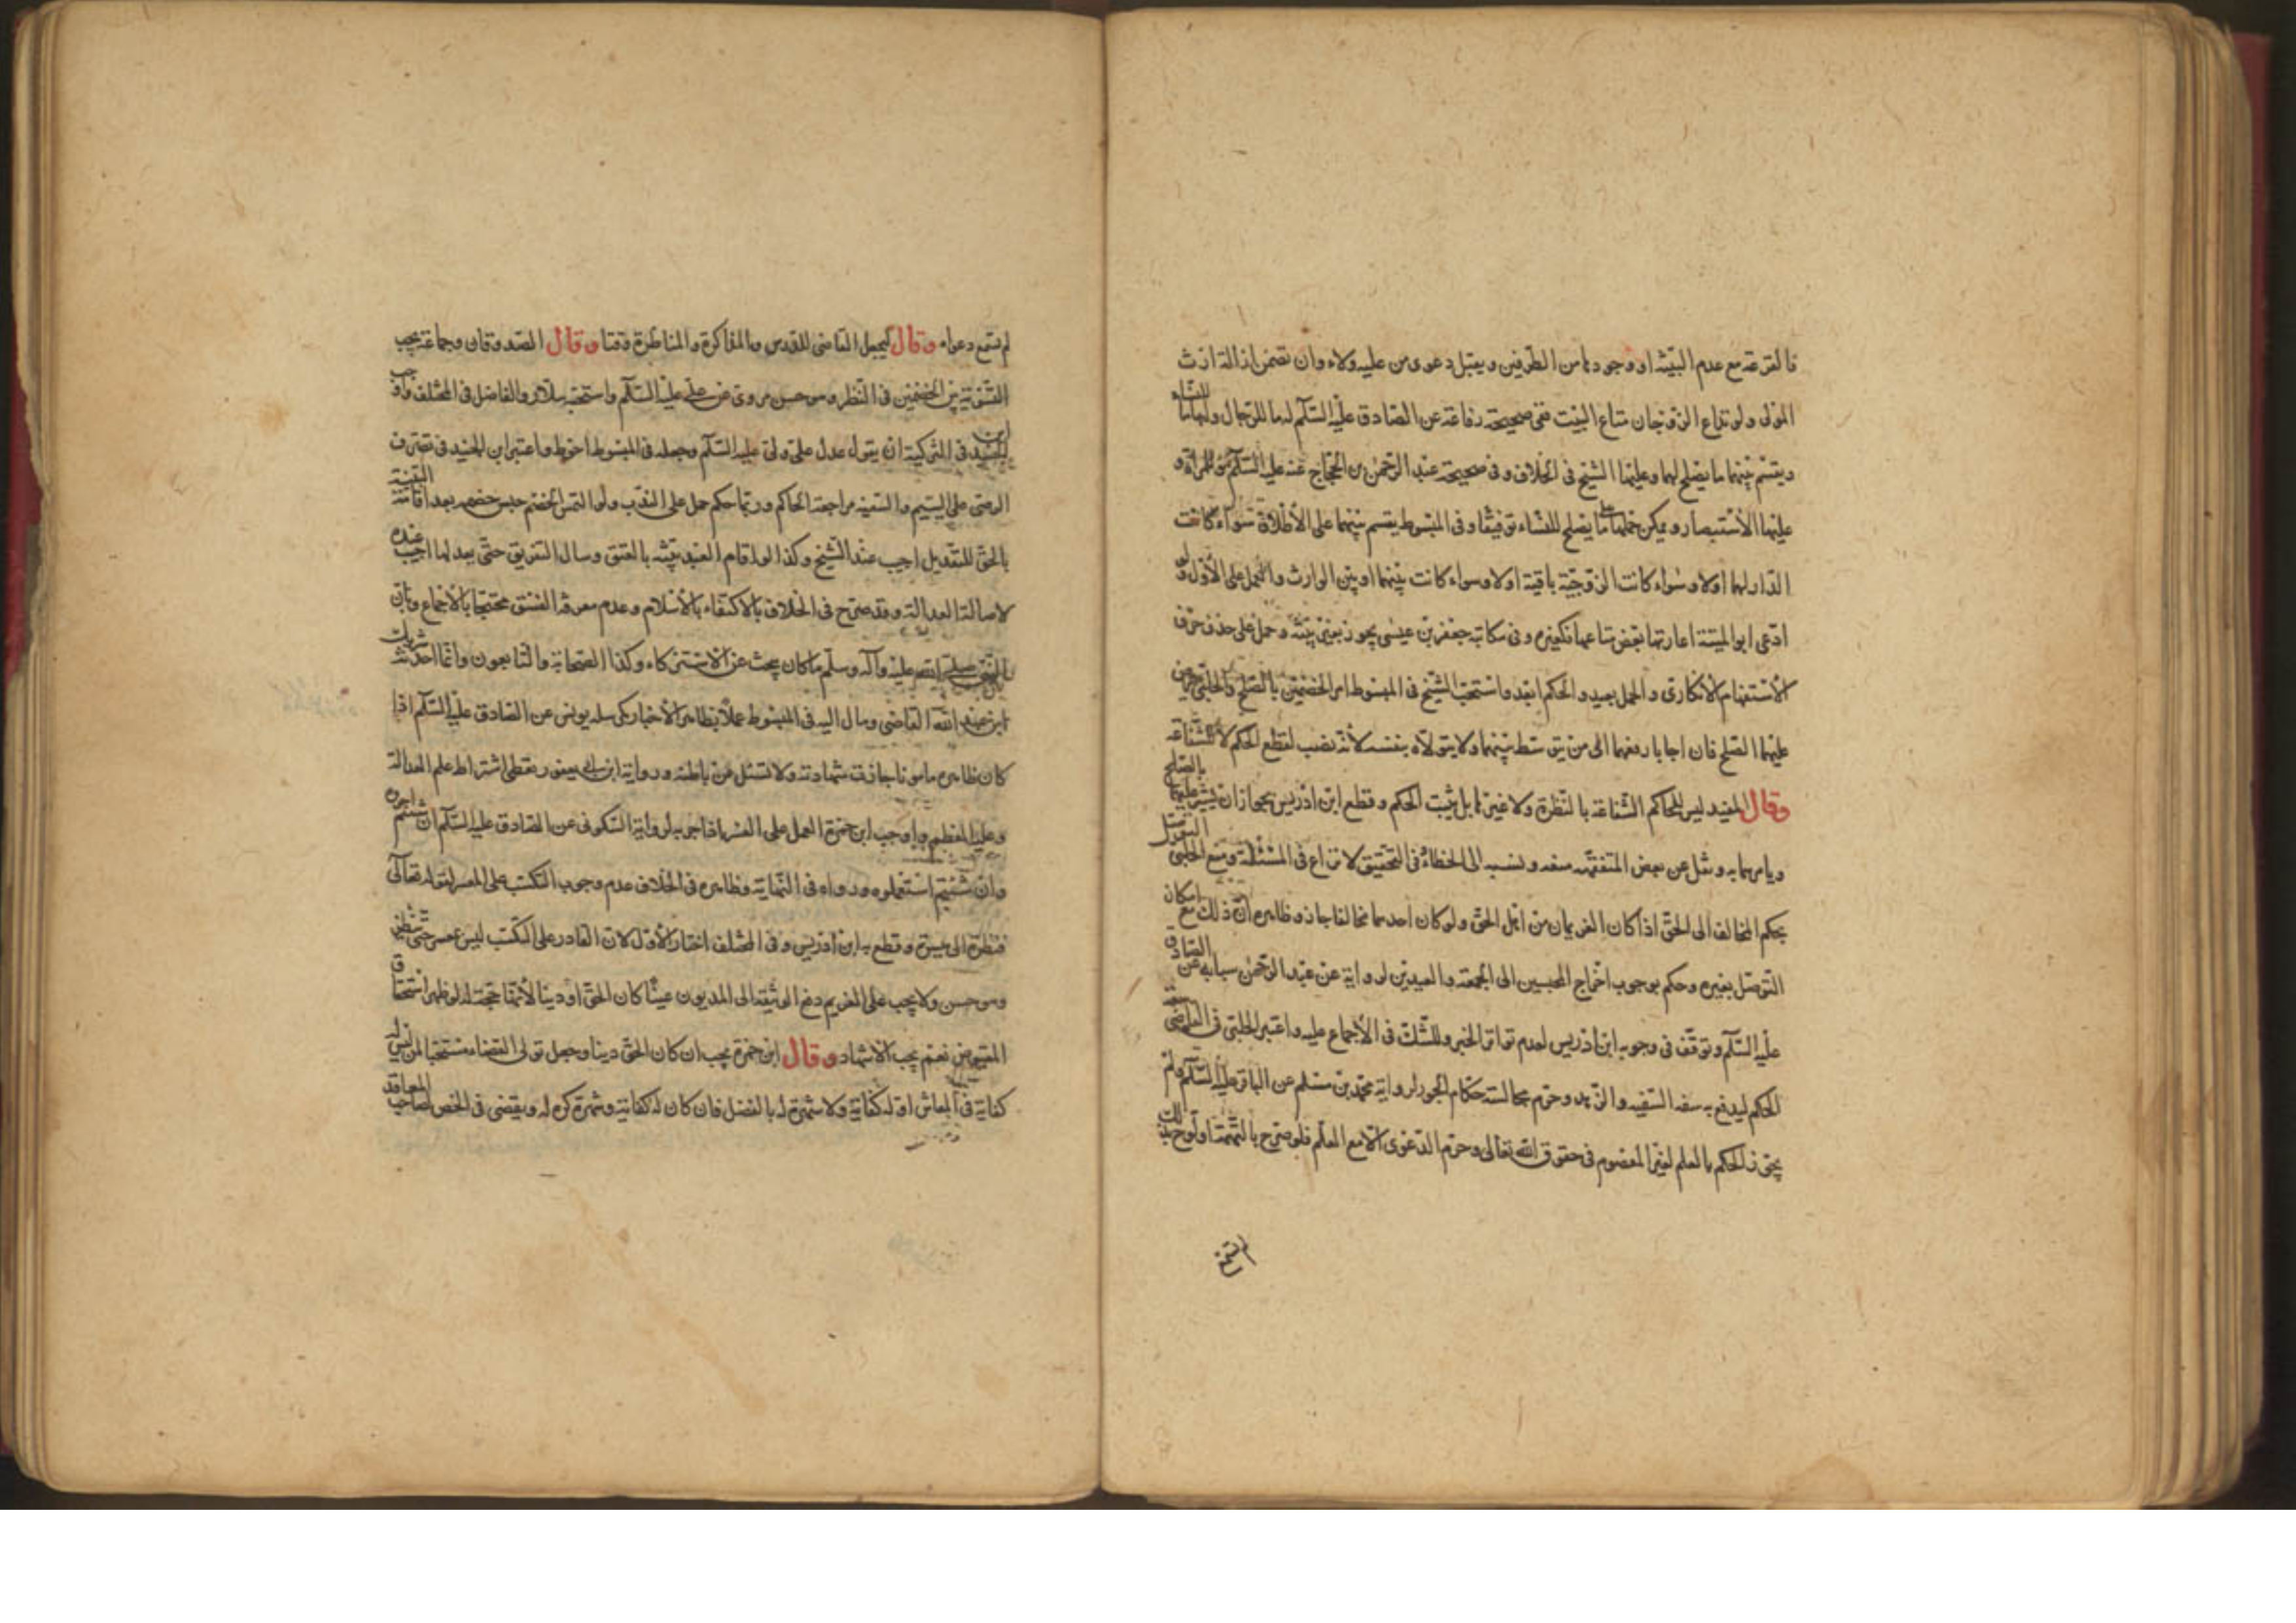 فالقرعة مع عدم البيّنة او وجودها من الطرفين ويقبل دعوى من عليه ولاء وان تضمن ازالة ارث
المولى ولو تداع الزوجان متاع البيت ففى صحيحة رفاعة عن الصادق عليه السلام له ما للرجال ولها ما للنساء
ويقسم بينهما ما يصلح لهما وعليها الشيخ فى الخلاف وفى صحيحة عبد الرحمن بن الحجاج عنه عليه السلام هو للمراة و
عليها الاستبصار ويمكن حملها على ما يصلح للنساء توفيقا وفى المبسوط يقسم بينهما على الاطلاق سواء كانت
الدار لهما اولا وسواء كانت الزوجية باقية اولا وسواء كانت بينهما او بين الوارث والعمل على الاول ولو
ادعى ابو الميتة اعارتها بعض متاعها فكغيره وفى مكاتبة جعفر بن عيسى يجوز بغير بيّنة وحمل على حذف حرف
الاستفهام الانكارى والحمل بعيد والحكم ابعد واستحب الشيخ فى المبسوط امر الخصمين بالصلح والحلبى يعرض
عليهما الصلح فان اجابا رفعهما الى من يتوسط بينهما ولا يتولاه بنفسه لانه نصب لقطع الحكم لا للشفاعة
وقال المفيد ليس للحاكم الشفاعة بالنظرة ولا غيرها بل يثبت الحكم وقطع ابن ادريس بجواز ان يشير عليهما بالصلح
ويامرهما به ونقل عن بعض المتفقهه منعه ونسبه الى الخطاء وفى التحقيق لا نزاع فى المسئلة ومنع الحلبى التوصل
بحكم المخالف الى الحق اذا كان الغريمان من اهل الحق ولو كان احدهما مخالفا جاز وظاهره ان ذلك مع امكان
التوصل بغيره وحكم بوجوب اخراج المحبسين الى الجمعة والعيدين لرواية عن عبد الرحمن سيابه عن الصادق
عليه السلام وتوقف فى وجوبه ابن ادريس لعدم تواتر الخبر وللشك فى الاجماع عليه واعتبر الحلبى فى القاضى سعة
الحكم ليدفع به سفه السفيه والزهد وحرم مجالسة حكام الجور لرواية محمد بن مسلم عن الباقر عليه السلام ولم
يجوز الحكم بالعلم لغير المعصوم فى حقوق الله تعالى وحرم الدعوى الا مع العلم فلو صرح بالتهمة او لوح بذلك
لم تسمع دعواه وقال ليجعل القاضى للدرس والمذاكرة والمناظرة وقتا وقال الصدوقان وجماعة يجب
التسوية بين الخصمين فى النظر وهو حسن مروى عن على عليه السلام واستحبه سلار والفاضل فى المختلف واوجب
ابن الجنيد فى التزكية ان يقول عدل علىّ ولى عليه السلام وجعله فى المبسوط احوط واعتبر ابن الجنيد فى تصرف
الوصى على اليتيم والسفيه مراجعة الحاكم وربما حكم حمل على الندب ولو التمس الخصم حبس خصمه بعد اقامة البيّنة
بالحق للتعديل اجيب عند الشيخ وكذا لو اقام العبد بيّنة بالعتق وسال التفريق حتى يعدلها اجيب عنده
لاصالة العدالة وقد صرح فى الخلاف بالاكتفاء بالاسلام وعدم معرفة الفسق محتجا بالاجماع وبان
النبى صلى الله عليه وآله وسلم ما كان يبحث عن الاستزكاء وكذا الصحابة والتابعون وانما احدثه شريك
ابن عبد الله القاضى ومال اليه فى المبسوط عملا بظاهر الاخبار كمرسلة يونس عن الصادق عليه السلام اذا
كان ظاهره مامونا جازت شهادته ولا تسئل عن باطنه ورواية ابن ابى يعفور يعطى اشتراط علم العدالة
وعليه المعظم واوجب ابن حمزة العمل على الغريم اذا اجر به لرواية السكونى عن الصادق عليه السلام ان شئتم اجروه
وان شئتم استعملوه ورواه فى النهاية وظاهره فى الخلاف عدم وجوب التكسب على المعسر لقوله تعالى
فنظرة الى ميسرة وقطع به ابن ادريس وفى المختلف اختار الاول لان القادر على التكسب ليس بمعسر حتى ينتظر
وهو حسن ولا يجب على الغريم دفع الوثيقة الى المديون عينا كان الحق او دينا لانها حجة له لو ظهر استحقاق
المقبوض نعم يجب الاشهاد وقال ابن حمزة يجب ان كان الحق دينا وجعل تولى القضاء مستحبا لمن ليس له
كفاية فى المعاش او له كفاية ولا شهرة له بالفضل فان كان له كفاية وشهرة كره له ويقضى فى الخص لصاحب المعاقد